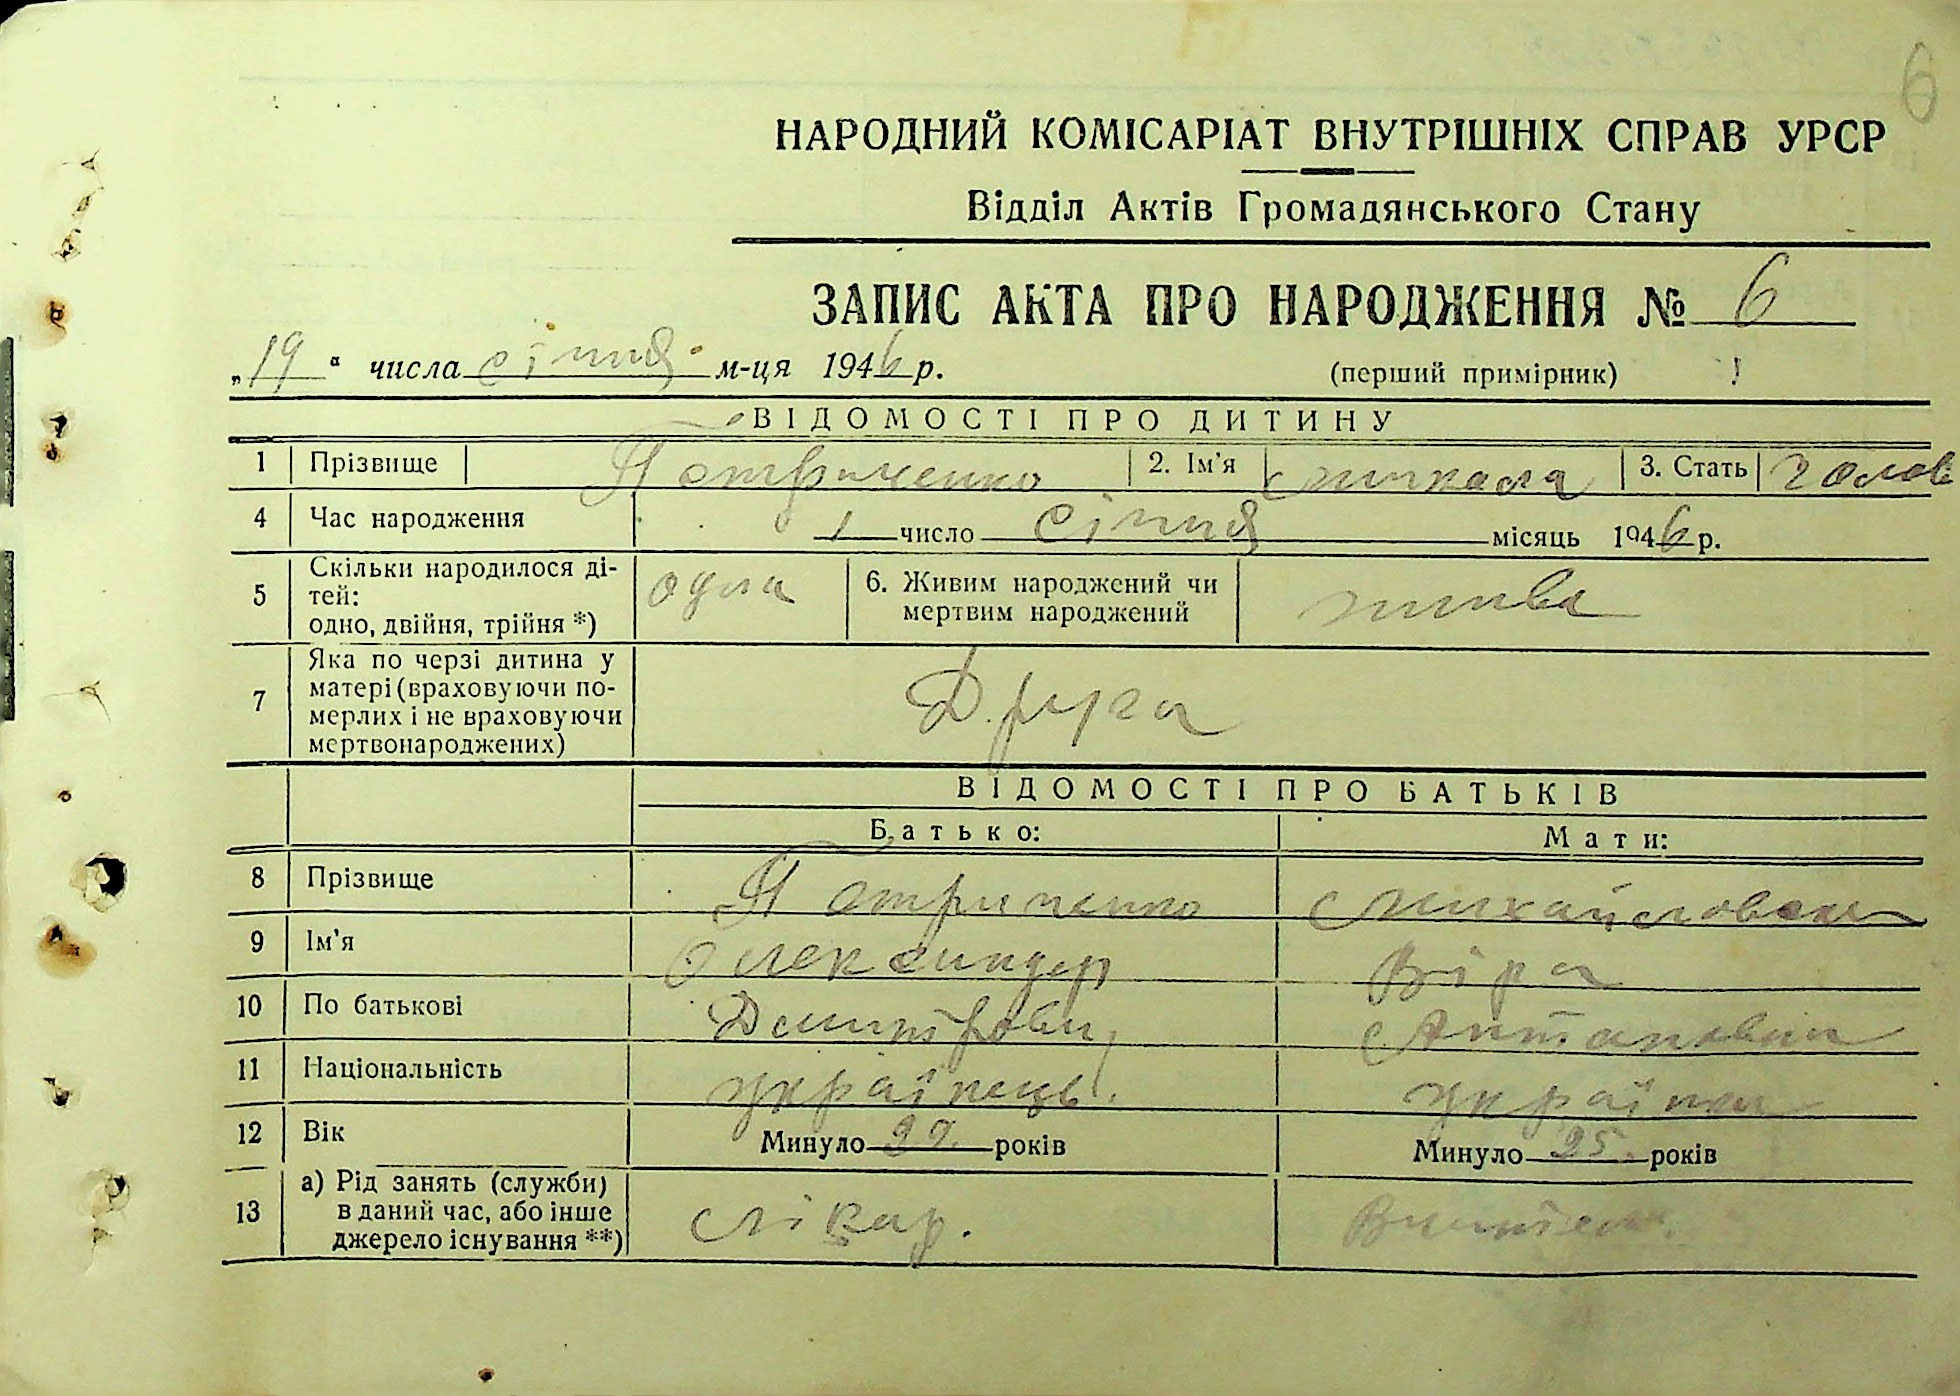 6
НАРОДНИЙ КОМІСАРІАТ ВНУТРІШНІХ СПРАВ УРСР
Відділ Актів Громадянського Стану
ЗАПИС АКТА ПРО НАРОДЖЕННЯ № 6
„19“ числа січня м-ця 1946 р.
(перший примірник)
ВІДОМОСТІ ПРО ДИТИНУ
1 Прізвище Петриченко 2. Ім'я Микола 3. Стать Чолов
4 Час народження 1 число січня місяць 1946 р.
5 Скільки народилося ді-
тей:
одно, двійня, трійня *) одна 6. Живим народжений чи
мертвим народжений жива
7 Яка по черзі дитина у
матері (враховуючи по-
мерлих і не враховуючи
мертвонароджених) Друга
ВІДОМОСТІ ПРО БАТЬКІВ
Батько: Мати:
8 Прізвище Петриченко
9 Ім'я Олександер Віра
10 По батькові
11 Національність українець. українка
12 Вік Минуло років Минуло 25 років
13 а) Рід занять (служби)
в даний час, або інше
джерело існування **) лікар.